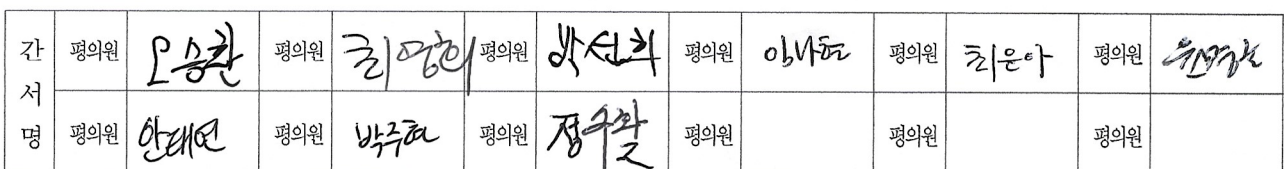 간 평의원 오승환 평의원 최영희 평의원 박선희 평의원 임나현 평의원 최윤아 평의원
서
명 평의원 안태연 평의원 박주현 평의원 평의원 평의원 평의원